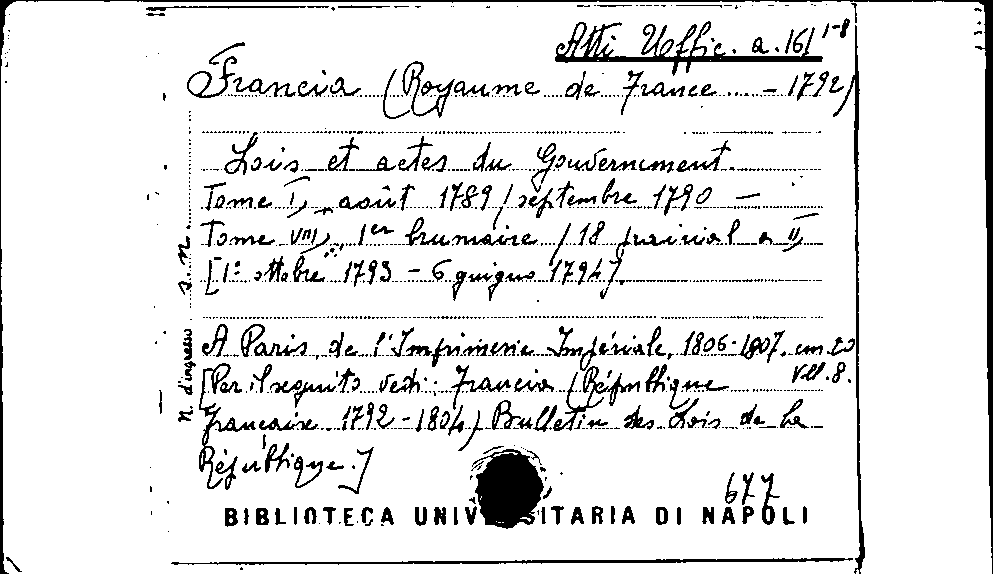 Atti Uffic. a.161 1-8
Francia (Royaume de France ... - 1792)
Lois et actes du Gouvernement.
Tome I, août 1789 / septembre 1790 —
Tome VIII, 1er brumaire / 18 prairial a II,
[1° ottobre 1793 - 6 giugno 1794].
A Paris, de l'Imprimerie Impériale, 1806-1807. cm. 20
Vol. 8.
[Per il seguito vedi: Francia (République
Française 1792-1804) Bulletin des Lois de la
République.]
677
N. d'ingresso s. n.
BIBLIOTECA UNIVERSITARIA DI NAPOLI